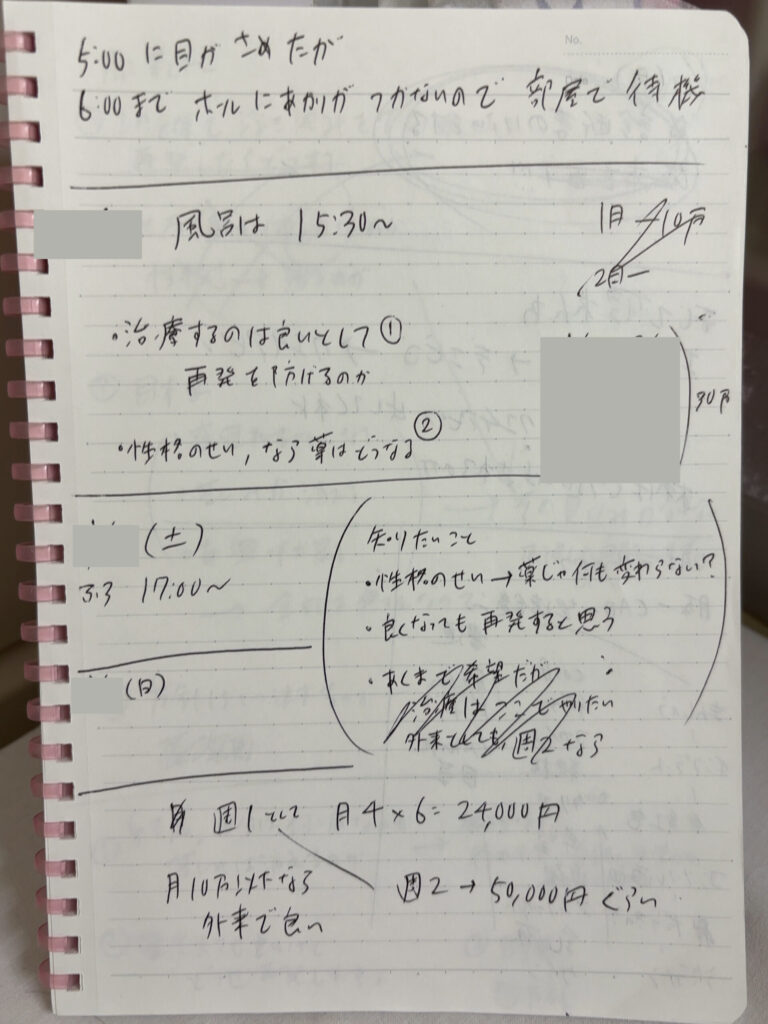 No.
5:00 に目がさめたが
6:00まで ホールにあかりが つかないので 部屋で 待機
風呂は 15:30〜
1月 → 10万
2月ー
・治療するのは良いとして①
再発を防げるのか
30万
・性格のせい,なら薬はどうなる②
(土)
33.3 17:00〜
(日)
知りたいこと
・性格のせい→薬じゃ何も変わらない?
・良くなっても再発すると思う
・あくまで希望だが
治療はここでやりたい
外来でしても週2なら
週1として 月4×6=24,000円
週2→50,000円ぐらい
月10万以下なら
外来で良い